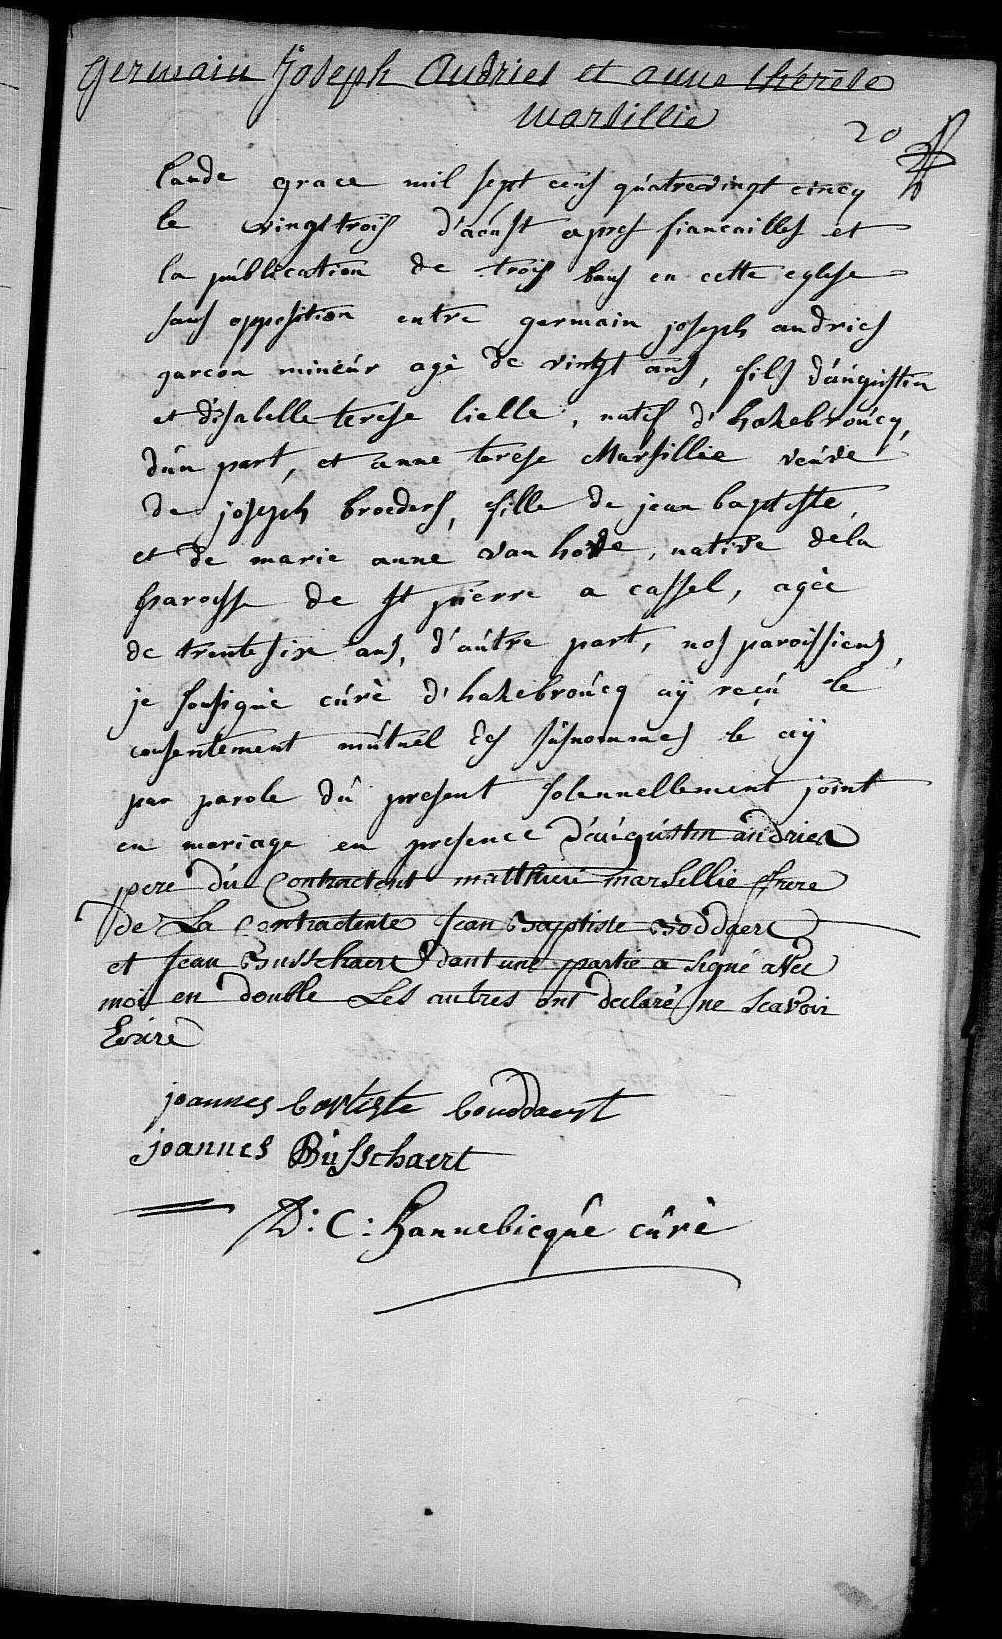 germain Joseph Andries et anne thérèse
Marsillie
20
lan de grace mil sept cens quatrevingt cincq
le vingt trois d'aoust apres fiancailles et
la publication de trois bans en cette eglise
sans opposition entre germain joseph andries
garcon mineur agé de vingt ans, fils d'augustin
et d'isabelle terese lielle, natif d'hazebroucq,
d'un part, et anne terese Marsillie veuve
de joseph broeders, fille de jean baptiste,
et de marie anne van hove, native dela
paroisse de st pierre a cassel, agée
de trente six ans, d'autre part, nos paroissiens,
je sousigné curé d'hazebroucq aÿ reçu le
consentement mutuel des susnommes le aÿ
par parole du present solennellement joint
en mariage en presence d'augustin andries
pere du Contractent matthieu marsellie frere
de La Contractente Jean Baptiste Boddaert
et Jean Busschaert dont une partie a signé avec
moi en double Les autres ont declaré ne scavoir
Ecrire
joannes baptiste bouddaert
joannes Busschaert
D: C: hannebicque curé